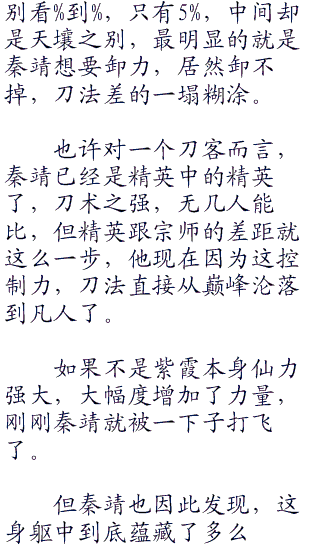 别看%到%，只有5%，中间却
是天壤之别，最明显的就是
秦靖想要卸力，居然卸不
掉，刀法差的一塌糊涂。
也许对一个刀客而言，
秦靖已经是精英中的精英
了，刀术之强，无几人能
比，但精英跟宗师的差距就
这么一步，他现在因为这控
制力，刀法直接从巅峰沦落
到凡人了。
如果不是紫霞本身仙力
强大，大幅度增加了力量，
刚刚秦靖就被一下子打飞
了。
但秦靖也因此发现，这
身躯中到底蕴藏了多么